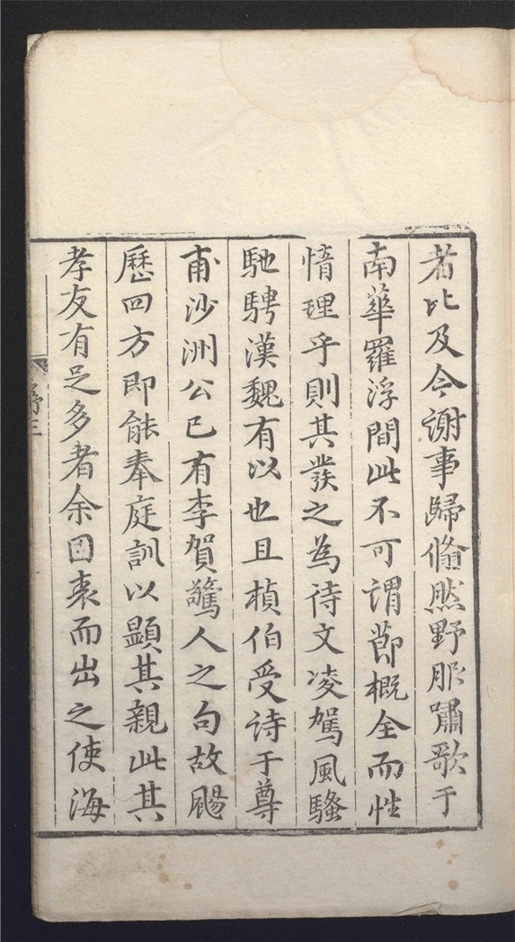 者比及今謝事歸翛然野服嘯歌于
南華羅浮間此不可謂節概全而性
情理乎則其發之為詩文凌駕風騷
馳騁漢魏有以也且楨伯受詩于尊
甫沙洲公已有李賀驚人之句故颺
歷四方即能奉庭訓以顯其親此其
孝友有足多者余因表而出之使海
序三